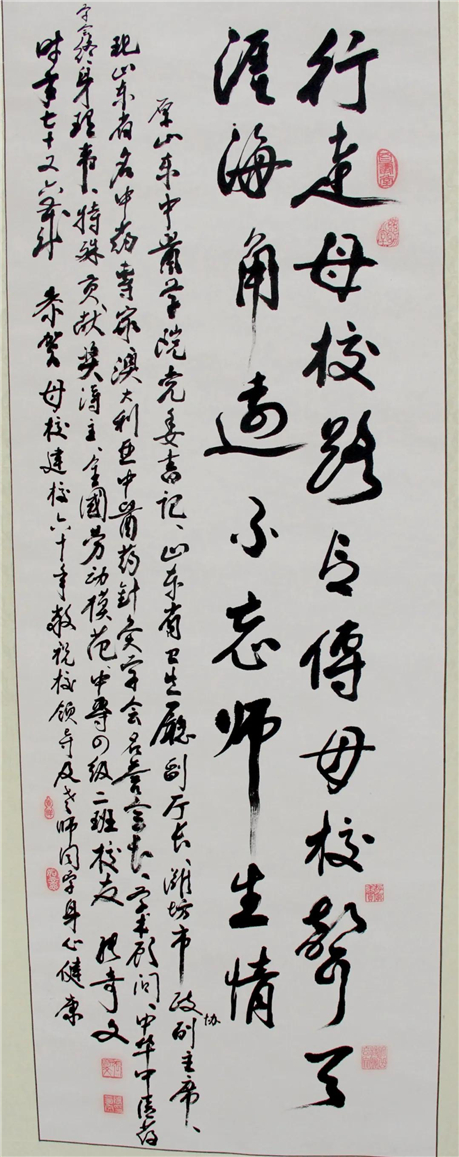 行走母校路言傳母校聲天
涯海角遠不忘师生情
原山东中醫学院党委書记、山东省卫生廳副厅长、潍坊市政协副主席、
现山东省名中药專家澳大利亚中醫药針灸学会名誉会长、学术顾问、中华中医药
学会終身理事、特殊贡献奖得主、全國劳动模范、中專の级二班校友 张奇文
时年七十又六岁 恭贺母校建校六十年敬祝校领导及老师同学身心健康